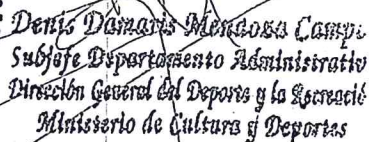 Denis Damaris Mendosa Camp
Subjefe Departamento Administrativ
Dirección General del Deporte y la Recreació
Ministerio de Cultura y Deportes